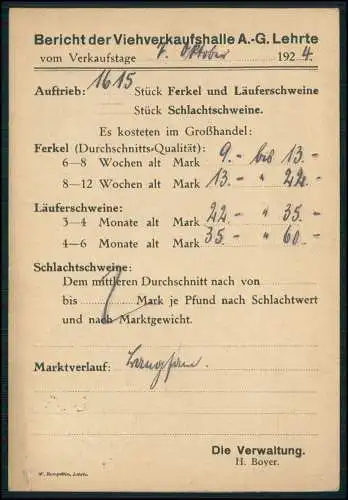 Bericht der Viehverkaufshalle A.-G. Lehrte
vom Verkaufstage 7. Oktober 1924.
Auftrieb: 1615 Stück Ferkel und Läuferschweine
Stück Schlachtschweine.
Es kosteten im Großhandel:
Ferkel (Durchschnitts-Qualität):
6–8 Wochen alt Mark 9.- bis 13.-
8–12 Wochen alt Mark 13.- " 22.-
Läuferschweine:
3–4 Monate alt Mark 22.- " 35.-
4–6 Monate alt Mark 35.- " 60.-
Schlachtschweine:
Dem mittleren Durchschnitt nach von
bis Mark je Pfund nach Schlachtwert
und nach Marktgewicht.
Marktverlauf: Langsam.
Die Verwaltung.
H. Boyer.